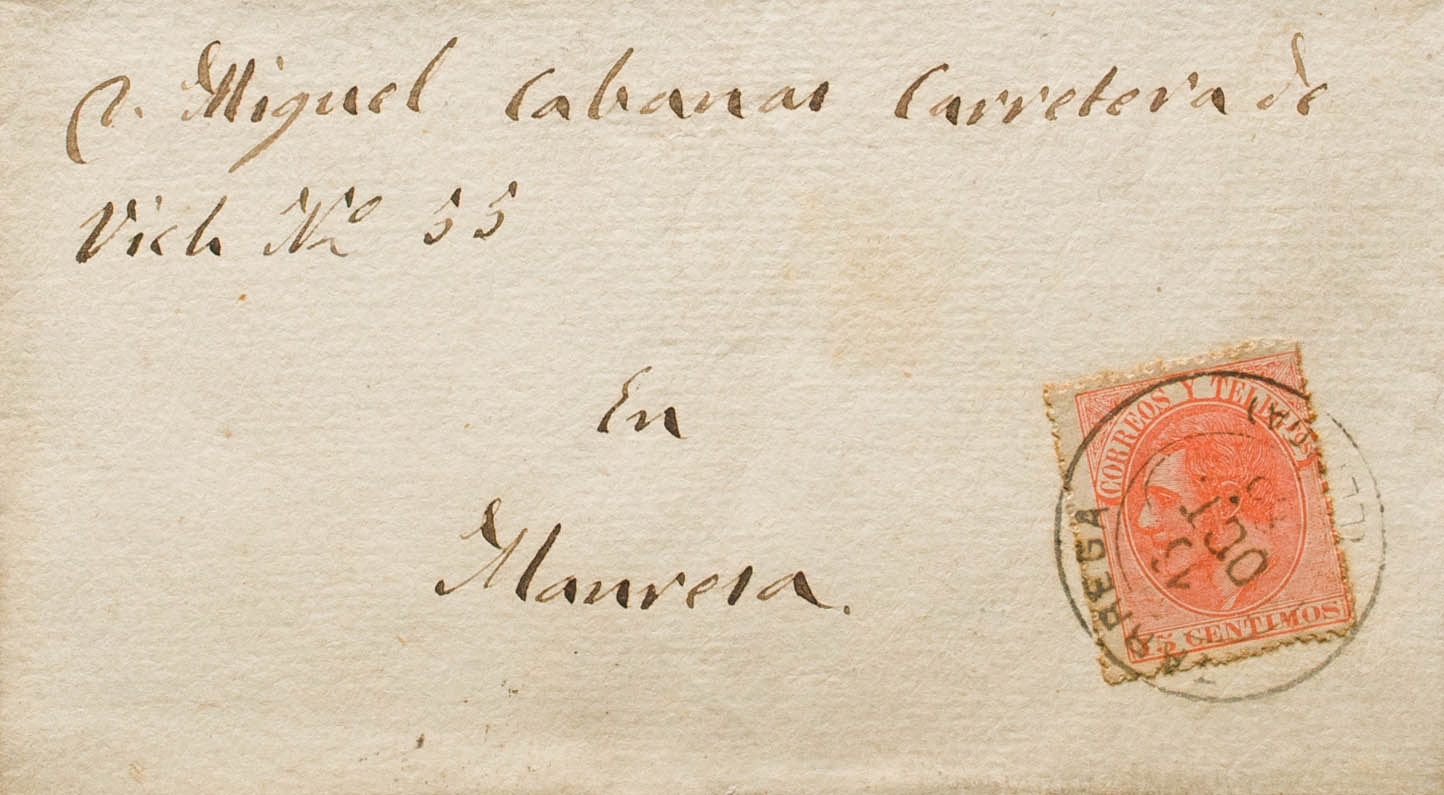 D. Miguel Cabanas Carretera de
Vich Nº 55
En
Manresa.
CORREOS Y TELEGFOS
15 CENTIMOS
TARREGA
OCT.